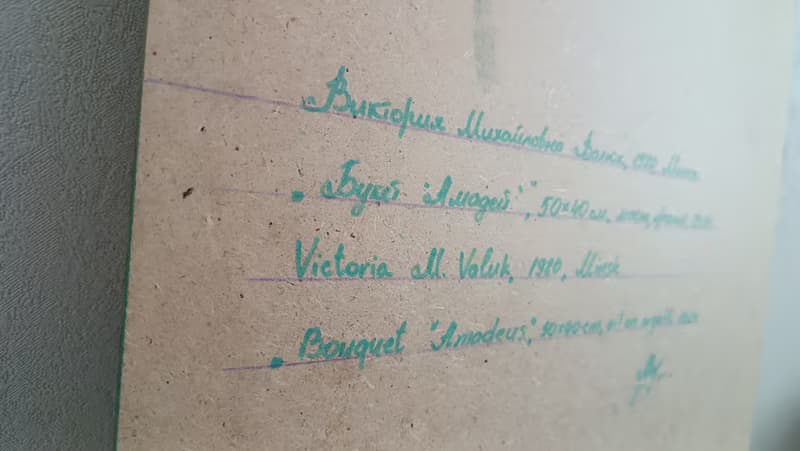 Виктория Михайловна Валюк, 1980, Минск
"Букет "Амадей"", 50×40 см,
Victoria M. Valuk, 1980, Minsk
"Bouquet "Amadeus", 50×40 cm, oil on